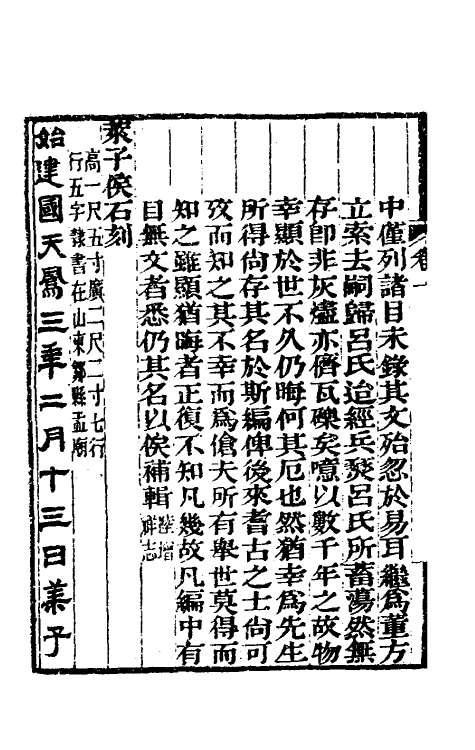 中僅列諸目未錄其文殆忽於易耳繼爲董方
立索去嗣歸呂氏迨經兵燹呂氏所蓄蕩然無
存卽非灰燼亦儕瓦礫矣噫以數千年之故物
幸顯於世不久仍晦何其厄也然猶幸爲先生
所得尙存其名於斯編俾後來耆古之士尙可
攷而知之其不幸而爲傖夫所有舉世莫得而
知之雖顯猶晦者正復不知凡幾故凡編中有
目無文者悉仍其名以俟補輯
陸增
祥志
萊子侯石刻
高一尺五寸廣二尺二寸七行
行五字隸書在山東鄒縣孟廟
始建國天鳳三年二月十三日萊子